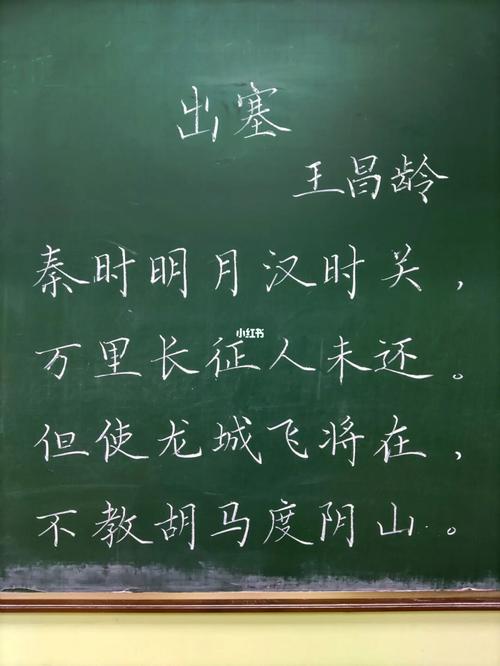 出塞
王昌龄
秦时明月汉时关，
小红书
万里长征人未还。
但使龙城飞将在，
不教胡马度阴山。